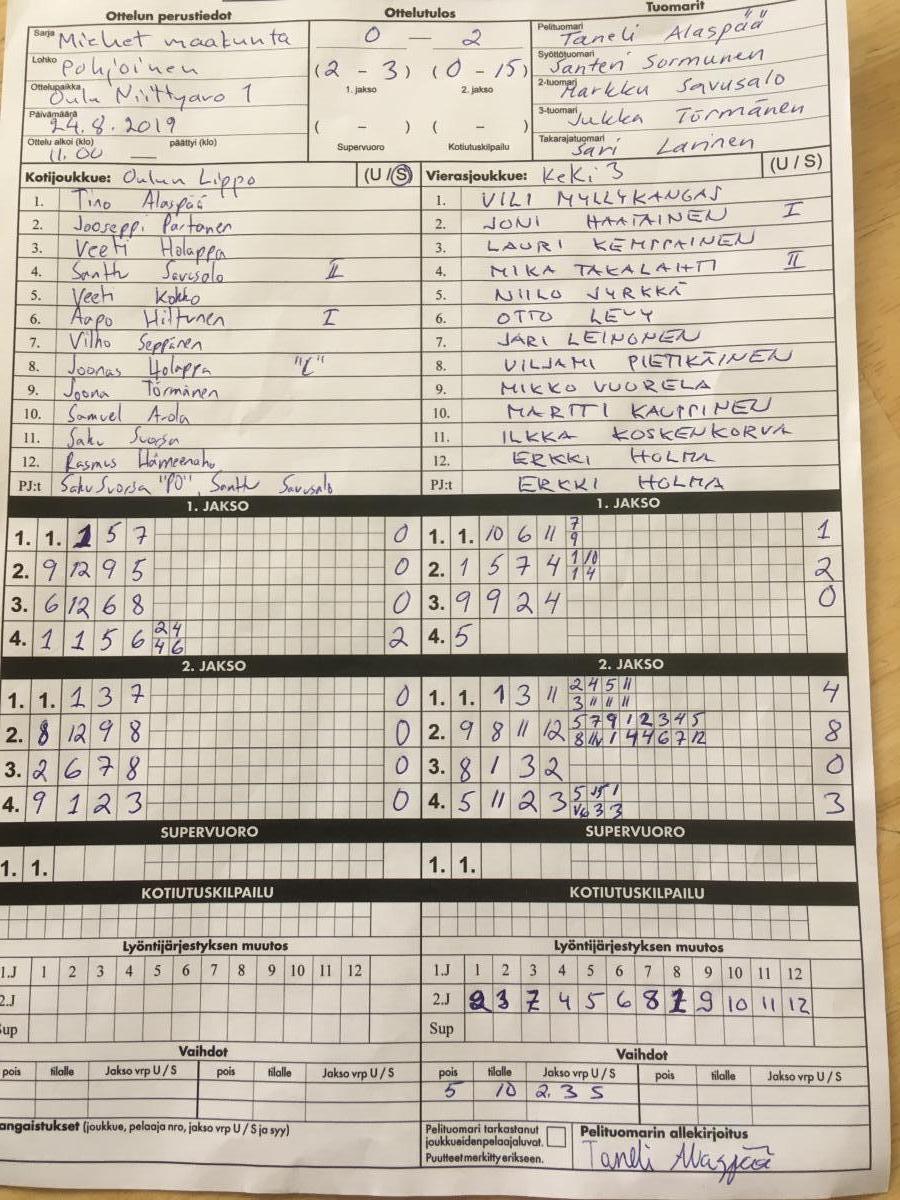 Ottelun perustiedot
Ottelutulos
Tuomarit
Sarja Miehet maakunta
Lohko Pohjoinen
Ottelupaikka Oulu Niittyaro 1
Päivämäärä 24.8.2019
Ottelu alkoi (klo) päättyi (klo)
11.00 —
0 — 2
(2 - 3) (0 - 15)
1. jakso 2. jakso
( - ) ( - )
Supervuoro Kotiutuskilpailu
Pelituomari Taneli Alaspää
Syöttötuomari Santeri Sormunen
2-tuomari Markku Savusalo
3-tuomari Jukka Törmänen
Takarajatuomari Sari Larinen
Kotijoukkue: Oulun Lippo (U / S)
1. Tino Alaspää
2. Jooseppi Partanen
3. Veeti Holappa
4. Santtu Savusalo II
5. Veeti Kokko
6. Aapo Hiltunen I
7. Vilho Seppänen
8. Joonas Holappa "C"
9. Joona Törmänen
10. Samuel A-ola
11. Saku Suorsa
12. Rasmus Hämeenaho
PJ:t Saku Suorsa "PO", Santtu Savusalo
Vierasjoukkue: KeKi 3 (U / S)
1. VILI MYLLYKANGAS
2. JONI HAATAINEN I
3. LAURI KEMPPAINEN
4. MIKA TAKALAHTI II
5. NIILO JYRKKÄ
6. OTTO LEVY
7. JARI LEINONEN
8. VILJAMI PIETIKÄINEN
9. MIKKO VUORELA
10. MARTTI KAUPPINEN
11. ILKKA KOSKENKORVA
12. ERKKI HOLMA
PJ:t ERKKI HOLMA
1. JAKSO
1. 1. 1 5 7 0
2. 9 12 9 5 0
3. 6 12 6 8 0
4. 1 1 5 6 2 4 2
4 6
1. JAKSO
1. 1. 10 6 11 7 1
9
2. 1 5 7 4 1 10 2
1 4
3. 9 9 2 4 0
4. 5
2. JAKSO
1. 1. 1 3 7 0
2. 8 12 9 8 0
3. 2 6 7 8 0
4. 9 1 2 3 0
2. JAKSO
1. 1. 1 3 11 2 4 5 11 4
3 11 11 11
2. 9 8 11 12 5 7 9 1 2 3 4 5 8
8 1 4 4 6 7 12
3. 8 1 3 2 0
4. 5 11 2 3 5 1 3
3 3
SUPERVUORO
1. 1.
SUPERVUORO
1. 1.
KOTIUTUSKILPAILU
KOTIUTUSKILPAILU
Lyöntijärjestyksen muutos
1.J 1 2 3 4 5 6 7 8 9 10 11 12
2.J
Sup
Lyöntijärjestyksen muutos
1.J 1 2 3 4 5 6 7 8 9 10 11 12
2.J 2 3 7 4 5 6 8 1 9 10 11 12
Sup
Vaihdot
pois tilalle Jakso vrp U / S pois tilalle Jakso vrp U / S
Vaihdot
pois tilalle Jakso vrp U / S pois tilalle Jakso vrp U / S
5 10 2. 3 S
angaistukset (joukkue, pelaaja nro, jakso vrp U / S ja syy)
Pelituomari tarkastanut
joukkueidenpelaajaluvat.
Puutteet merkitty erikseen.
Pelituomarin allekirjoitus
Taneli Alaspää